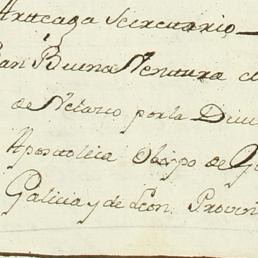 Arteaga Secretario
San Buena Ventura
de Notario por la Divi
Apostolica Obispo de
Galicia y de Leon. Provin